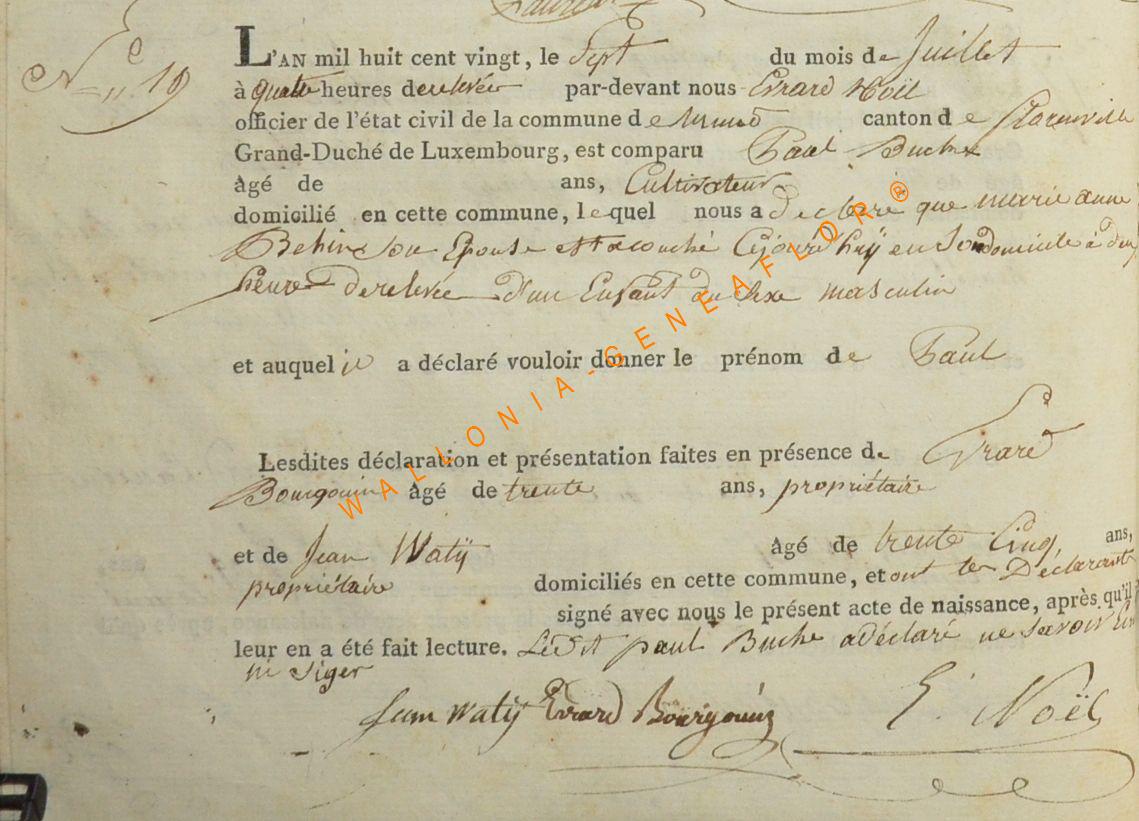 N° 19
L'AN mil huit cent vingt, le Sept du mois de Juillet
à quatre heures de relevée par-devant nous Evrard Noël
officier de l'état civil de la commune de canton de Florenville
Grand-Duché de Luxembourg, est comparu Paul Buche
âgé de ans, Cultivateur
domicilié en cette commune, lequel nous a declaré que marie anne
Behin son Epouse est acouché Cejourd'huy en Son domicile à deux
heures de relevée d'un Enfant du Sexe masculin
et auquel il a déclaré vouloir donner le prénom de Paul
Lesdites déclaration et présentation faites en présence de Evrard
Bourgouin âgé de trente ans, propriétaire
et de Jean Watÿ âgé de trente Cinq ans,
propriétaire domiciliés en cette commune, et ont les Declarants
signé avec nous le présent acte de naissance, après qu'il
leur en a été fait lecture. Ledit paul Buche a déclaré ne Savoir
ni Siger
Jean Watÿ Evrard Bourgouin E. Noël
WALLONIA-GENEAFLOR®